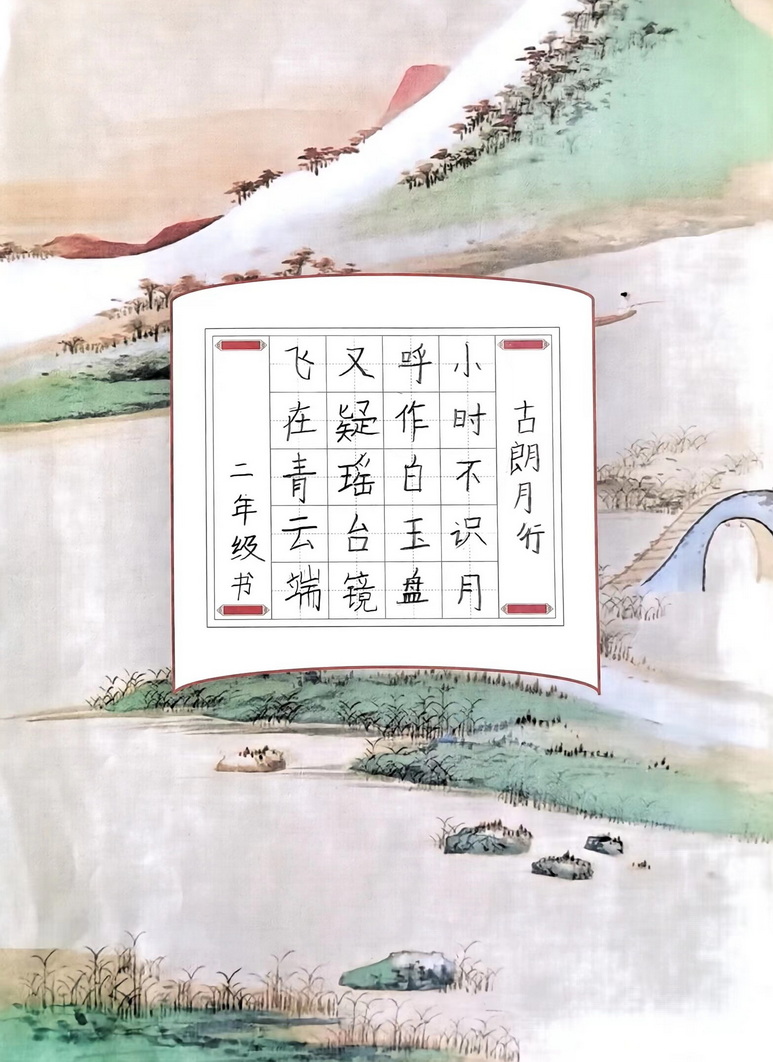 古朗月行
小时不识月
呼作白玉盘
又疑瑶台镜
飞在青云端
二年级书